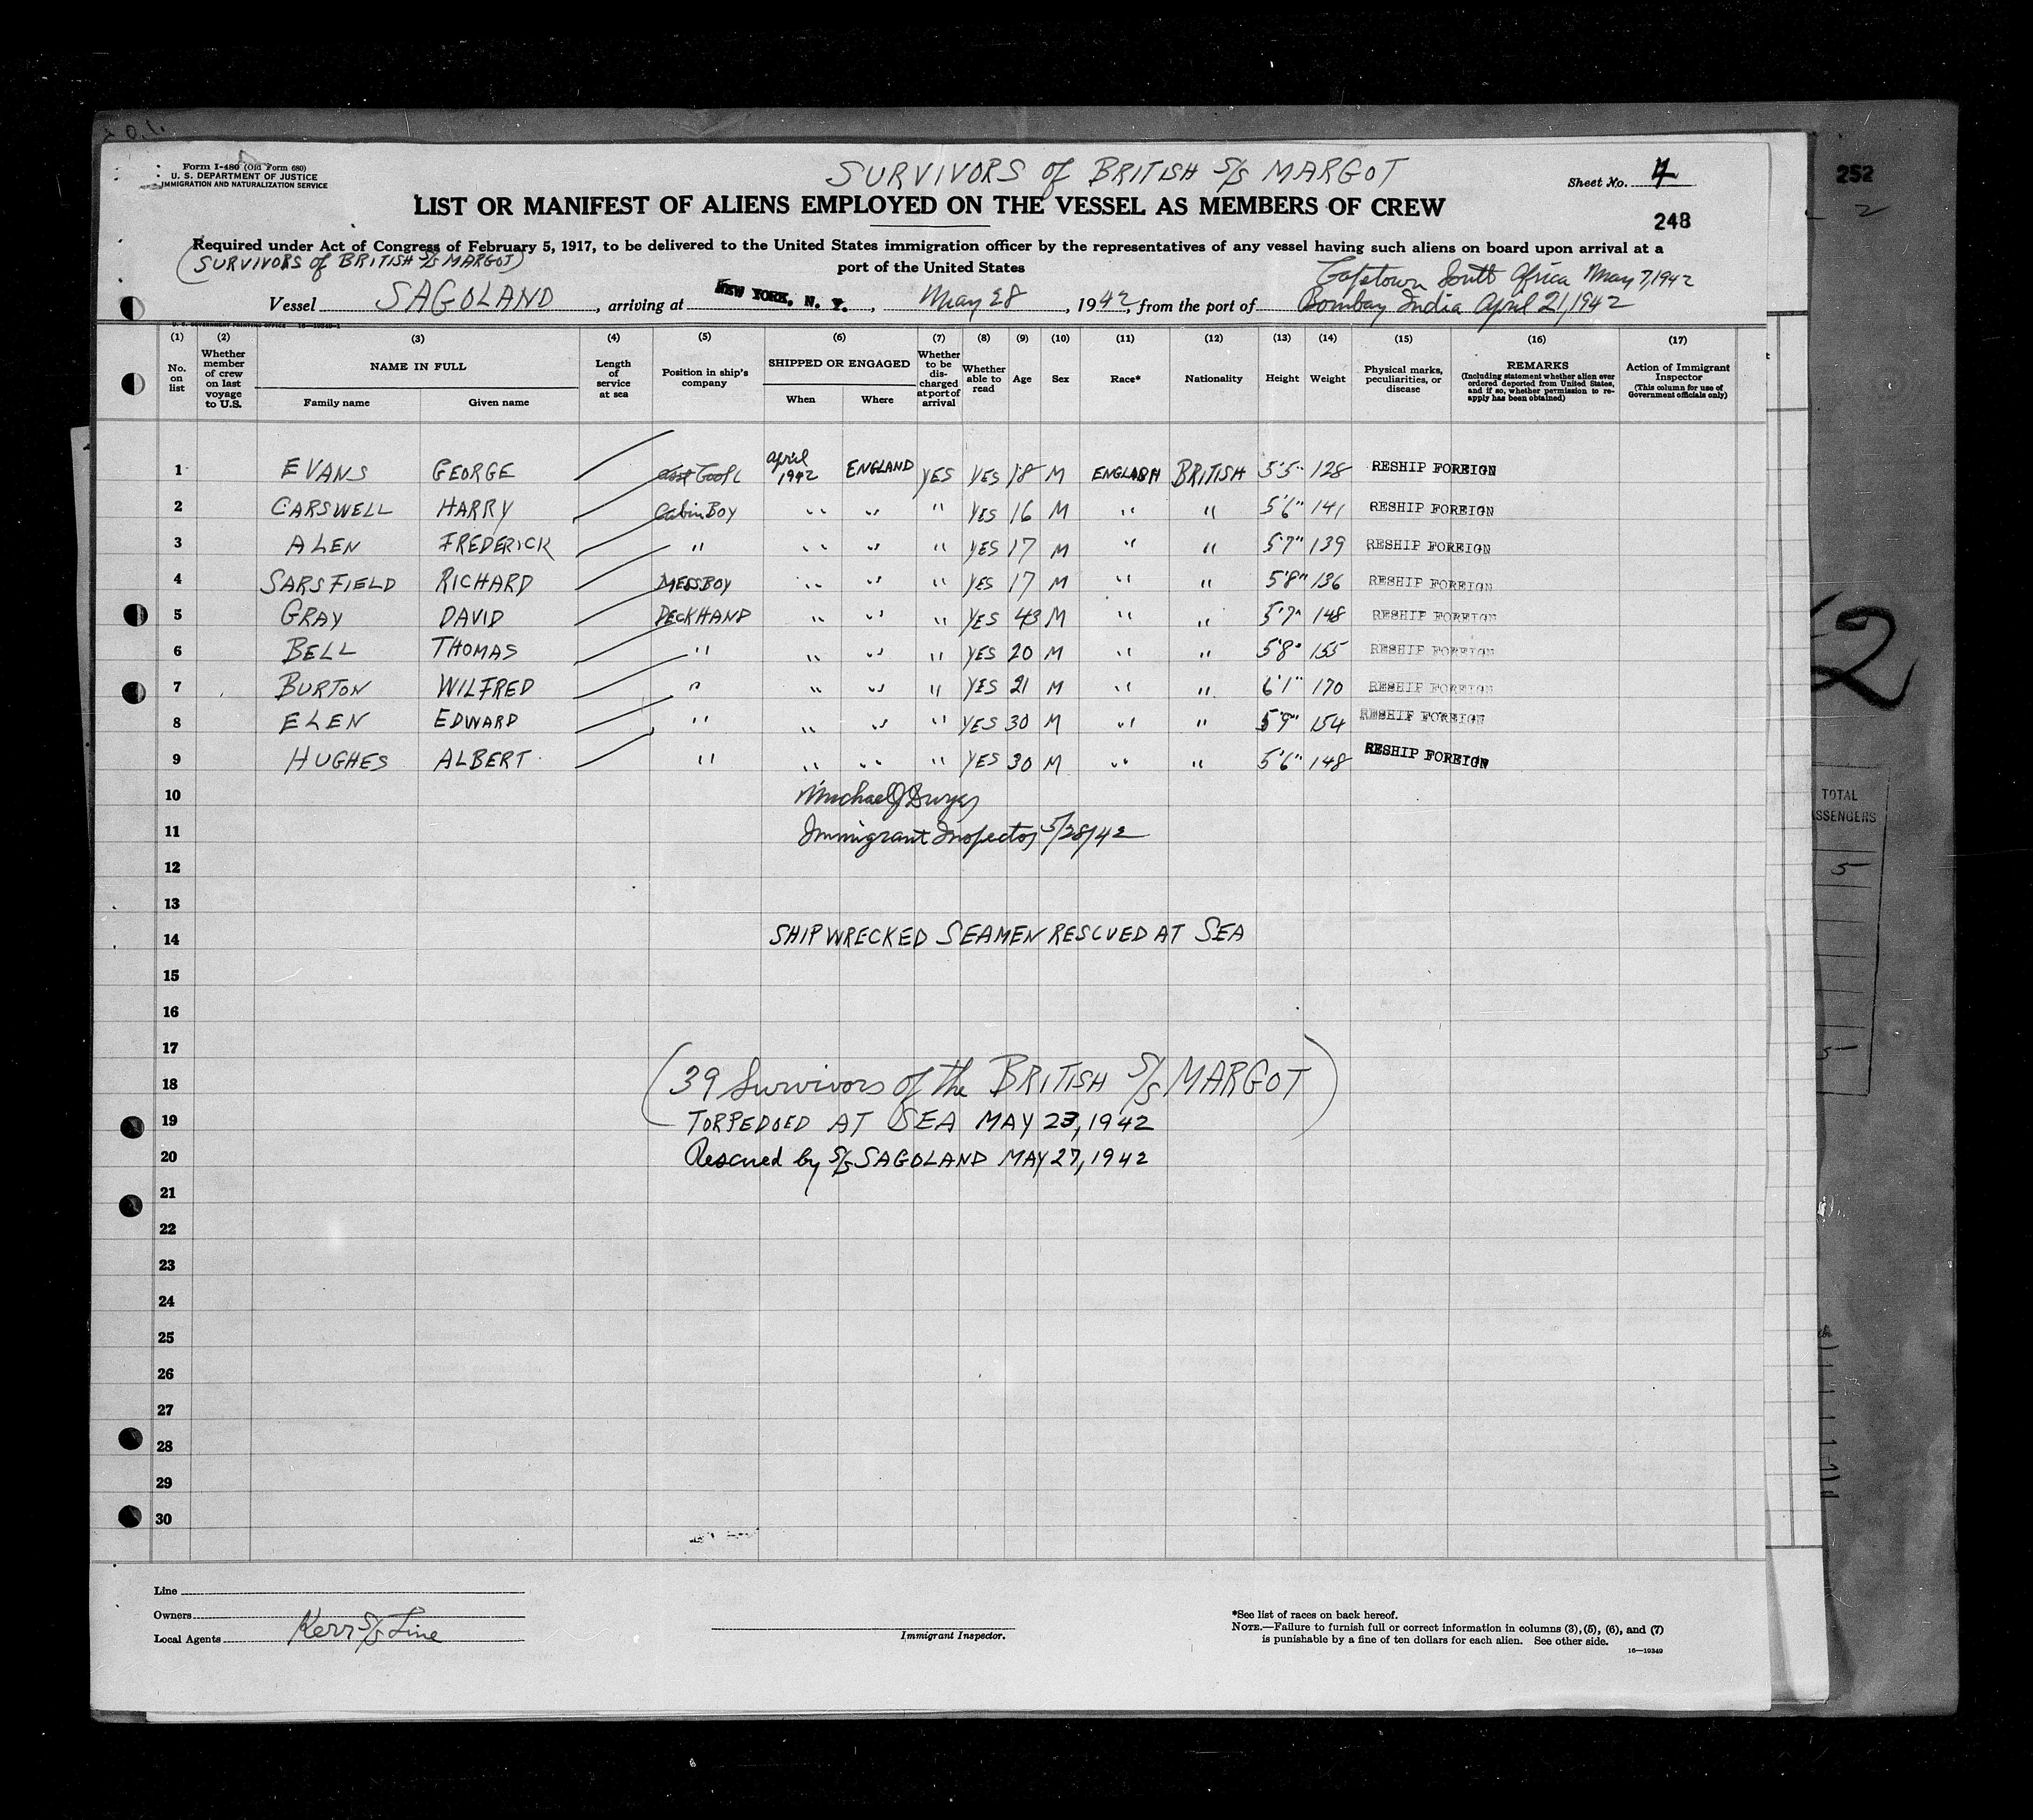 Form I-480 (Old Form 680)
U. S. DEPARTMENT OF JUSTICE
IMMIGRATION AND NATURALIZATION SERVICE
SURVIVORS of BRITISH S/S MARGOT
Sheet No. 4
252
2
LIST OR MANIFEST OF ALIENS EMPLOYED ON THE VESSEL AS MEMBERS OF CREW
248
Required under Act of Congress of February 5, 1917, to be delivered to the United States immigration officer by the representatives of any vessel having such aliens on board upon arrival at a
port of the United States
(SURVIVORS of BRITISH S/S MARGOT)
Capetown South Africa May 7, 1942
Vessel SAGOLAND, arriving at NEW YORK, N. Y., May 28, 1942, from the port of Bombay India April 21, 1942
U. S. GOVERNMENT PRINTING OFFICE 16—19349-1
(1) (2) (3) (4) (5) (6) (7) (8) (9) (10) (11) (12) (13) (14) (15) (16) (17)
No. on list
Whether member of crew on last voyage to U.S.
NAME IN FULL
Family name
Given name
Length of service at sea
Position in ship's company
SHIPPED OR ENGAGED
When
Where
Whether to be discharged at port of arrival
Whether able to read
Age
Sex
Race*
Nationality
Height
Weight
Physical marks, peculiarities, or disease
REMARKS
(Including statement whether alien ever ordered deported from United States, and if so, whether permission to reapply has been obtained)
Action of Immigrant Inspector
(This column for use of Government officials only)
1 EVANS GEORGE Cook April 1942 ENGLAND YES YES 18 M ENGLISH BRITISH 5'5" 128 RESHIP FOREIGN
2 CARSWELL HARRY Cabin Boy " " " YES 16 M " " 5'6" 141 RESHIP FOREIGN
3 ALEN FREDERICK " " " " YES 17 M " " 5'7" 139 RESHIP FOREIGN
4 SARSFIELD RICHARD MESSBOY " " " YES 17 M " " 5'8" 136 RESHIP FOREIGN
5 GRAY DAVID DECKHAND " " " YES 43 M " " 5'7" 148 RESHIP FOREIGN
6 BELL THOMAS " " " " YES 20 M " " 5'8" 155 RESHIP FOREIGN
7 BURTON WILFRED " " " " YES 21 M " " 6'1" 170 RESHIP FOREIGN
8 ELEN EDWARD " " " " YES 30 M " " 5'9" 154 RESHIP FOREIGN
9 HUGHES ALBERT " " " " YES 30 M " " 5'6" 148 RESHIP FOREIGN
10 Michael J Dwyer
11 Immigrant Inspector 5/28/42
12
13
14 SHIPWRECKED SEAMEN RESCUED AT SEA
15
16
17
18 (39 Survivors of the BRITISH S/S MARGOT)
19 TORPEDOED AT SEA MAY 23, 1942
20 Rescued by S/S SAGOLAND MAY 27, 1942
21
22
23
24
25
26
27
28
29
30
TOTAL
5
5
Line
Owners
Local Agents Kerr S/S Line
Immigrant Inspector.
*See list of races on back hereof.
NOTE.—Failure to furnish full or correct information in columns (3), (5), (6), and (7)
is punishable by a fine of ten dollars for each alien. See other side.
16—19349